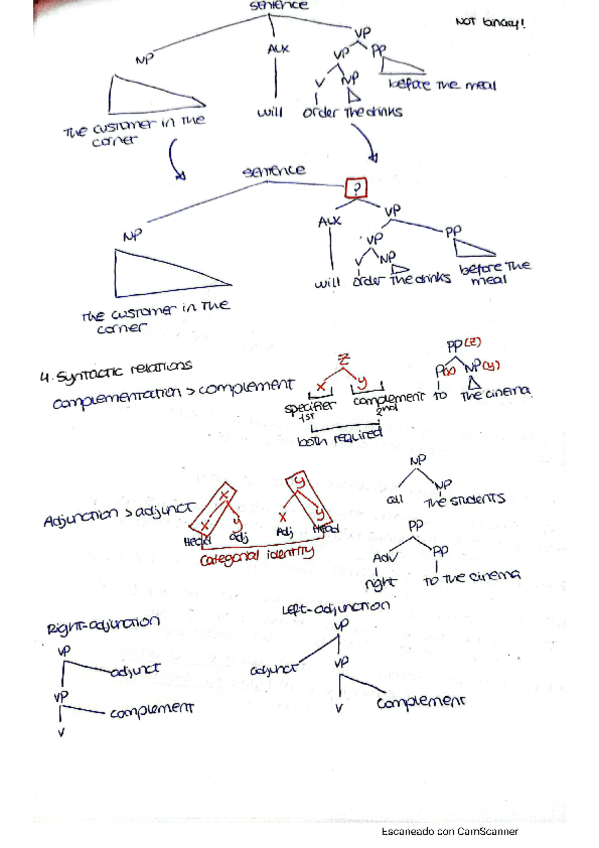 sentence
NOT binary!
NP AUX VP
VP PP
V NP
The customer in the
corner
will order the drinks
before the meal
sentence
?
NP AUX VP
VP PP
V NP
The customer in the
corner
will order the drinks
before the
meal
4. Syntactic relations
complementation > complement
z
x y
specifier complement
1st 2nd
both required
PP(z)
P(x) NP(y)
to the cinema
Adjunction > adjunct
x
x y
Head adj
y
x y
Adj Head
categorial identity
NP
all NP
the students
PP
Adv PP
right to the cinema
Right-adjunction
VP
adjunct
VP
complement
V
Left-adjunction
VP
adjunct VP
V complement
Escaneado con CamScanner